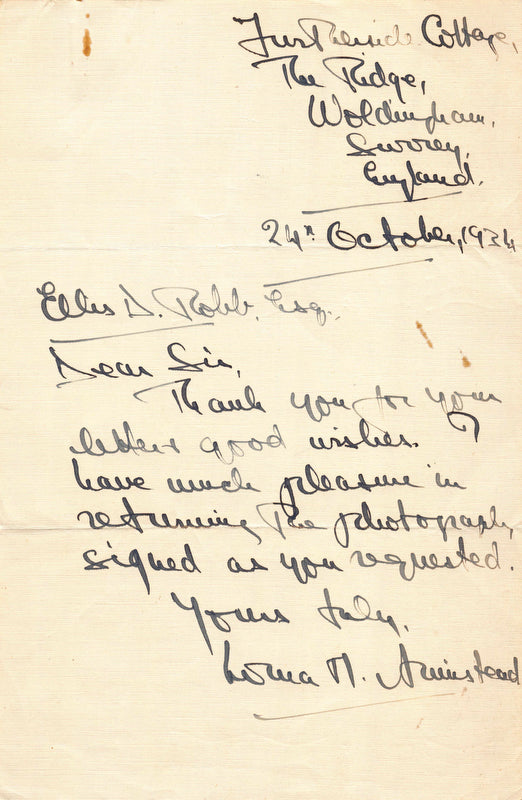 Cottage,
The Ridge,
Woldingham,
Surrey,
England.
24th October, 1934
Ellis D. Robb, Esq.,
Dear Sir,
Thank you for your
letter & good wishes. I
have much pleasure in
returning the photograph,
signed as you requested.
Yours truly,
Lorna M. Armistead